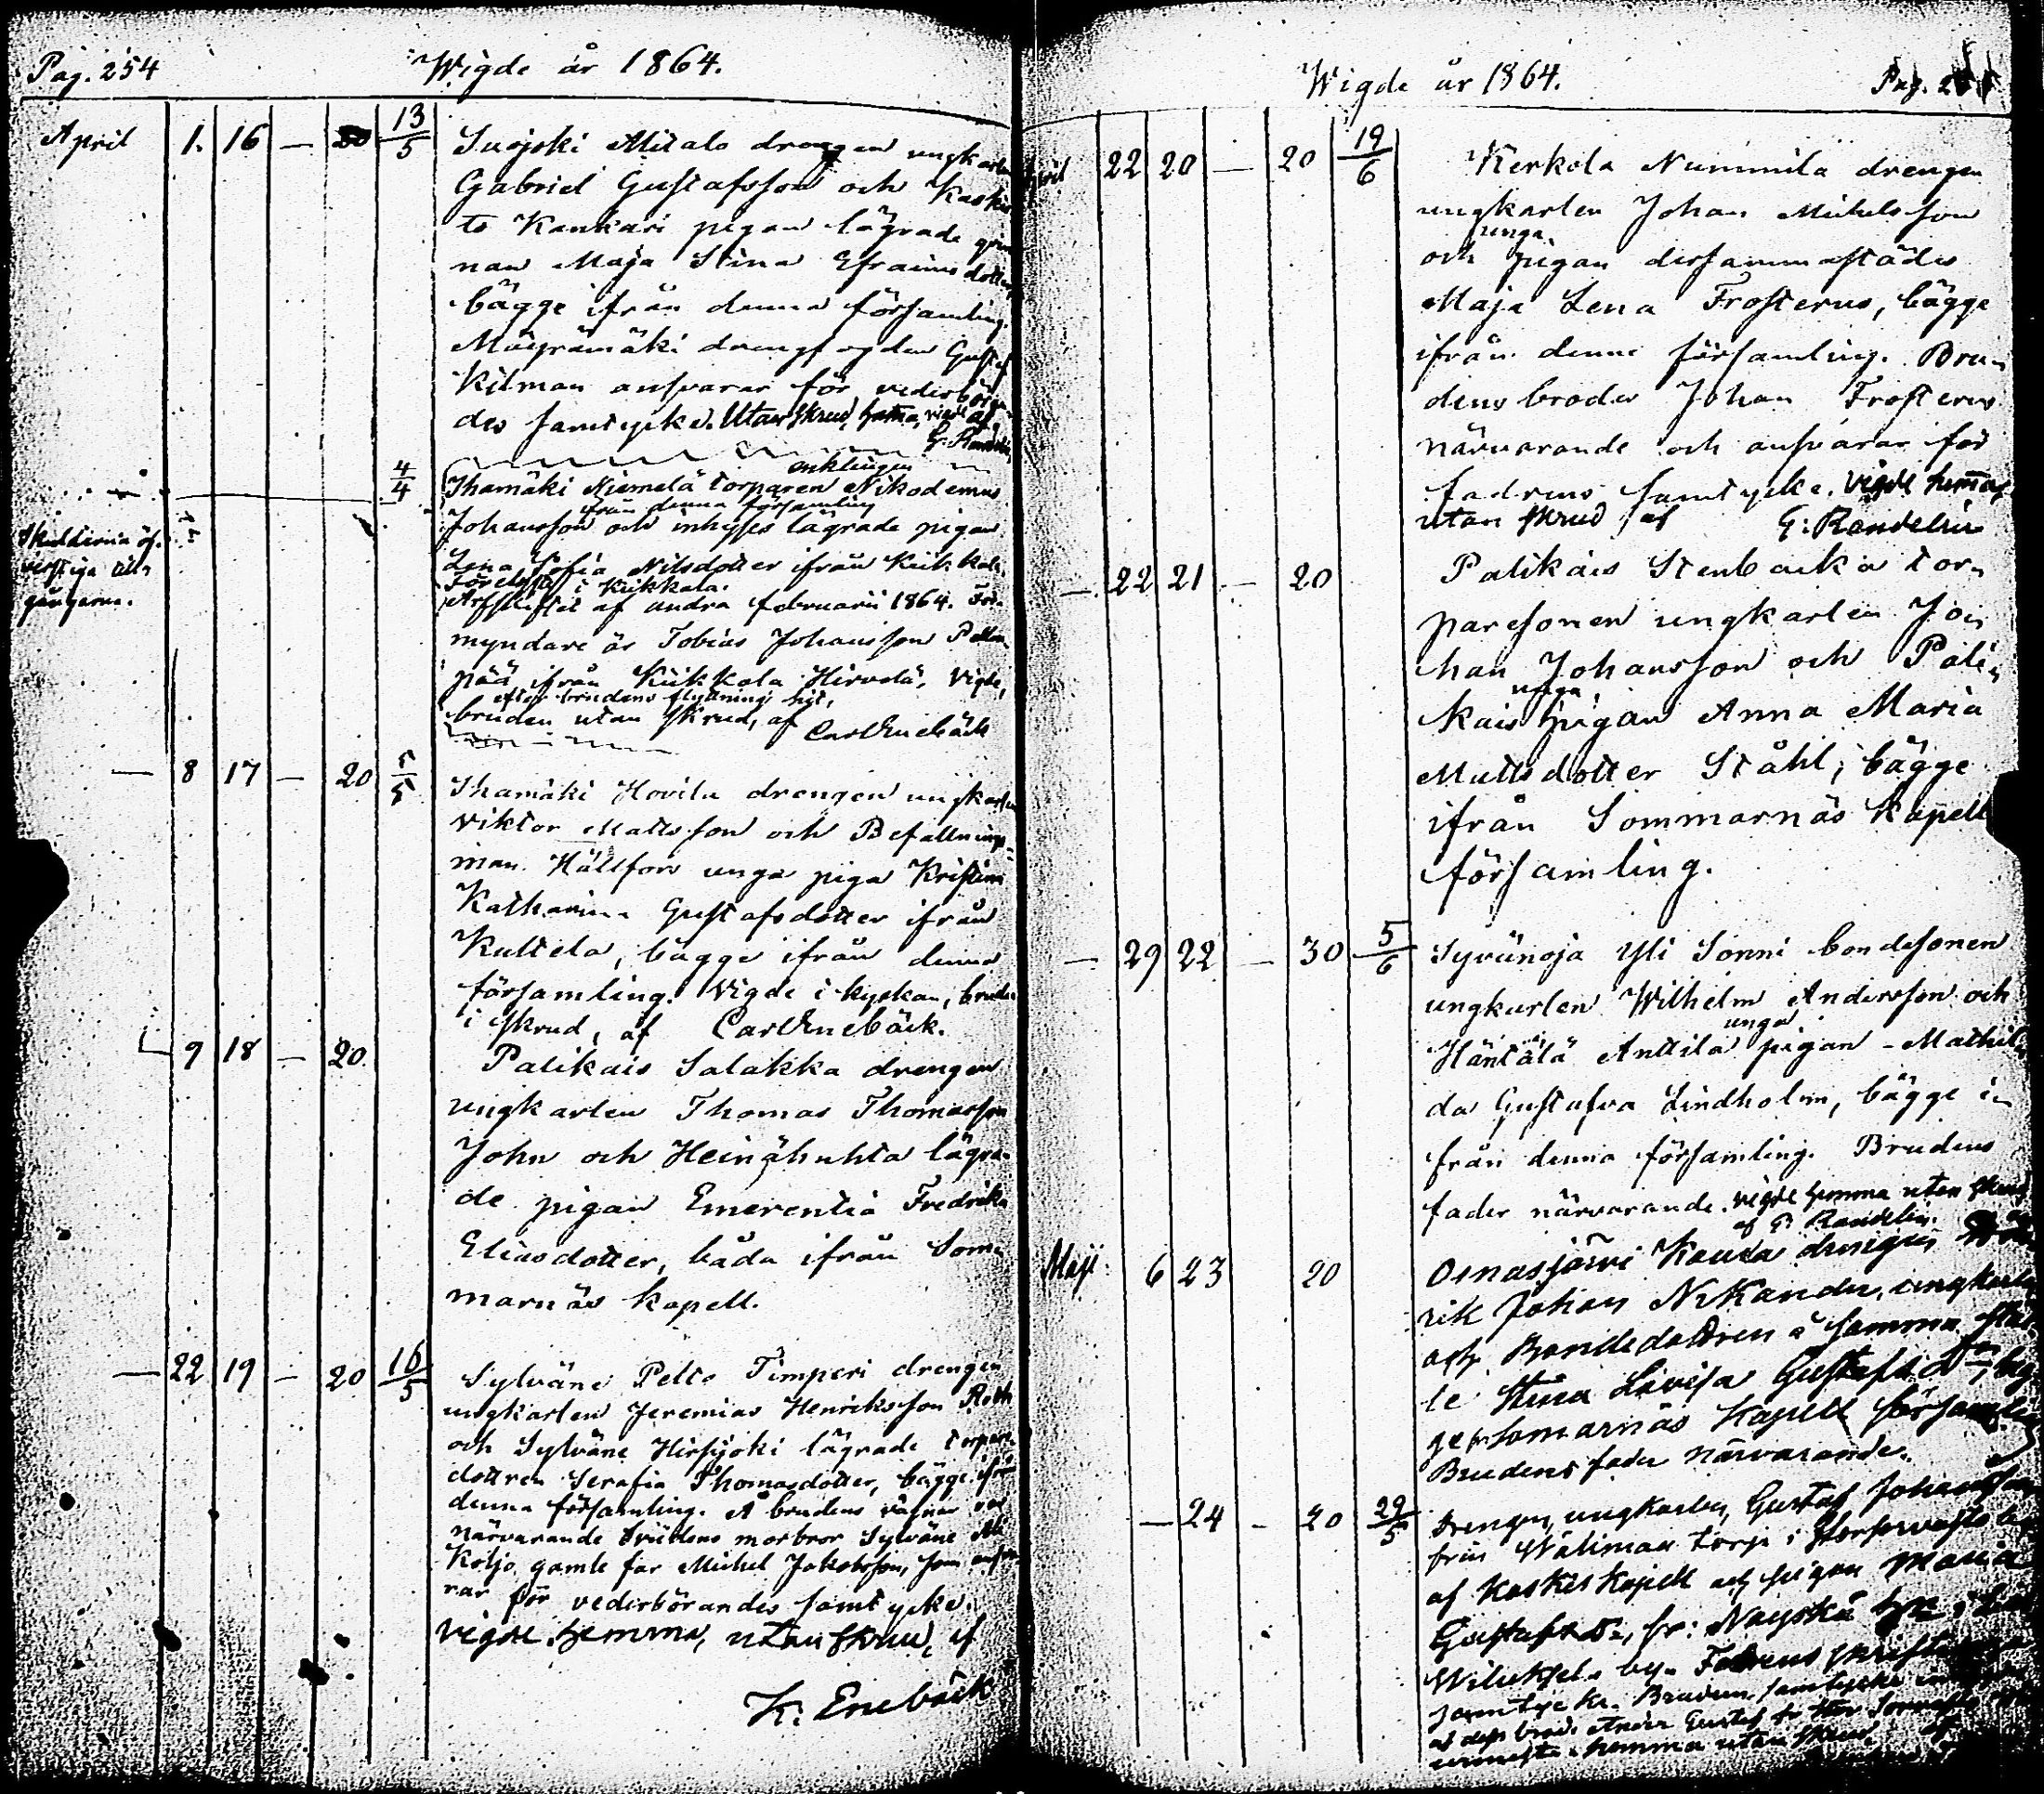 Pag. 254
Wigde år 1864.
April 1. 16 — 20 13/5 Suojoki Alitalo drengen ungkarlen
Gabriel Gustafsson och Kaskis
to Kankari pigan lägrade qvin
nan Maja Stina Efraimsdotter
bägge ifrån denna församling.
Mäyrämäki drengfogden Gustaf
Kilman ansvarar för vederböran
des samtycke. Utan skrud, hema, vigde af
G. Randelin
4/4 Ihamäki Niemelä torparen enklingen Nikodemus
från denna församling
Johansson och inhyses lägrade pigan
Skulderna öf-
verstiga till-
gångarna.
Lena Sofia Nilsdotter ifrån Kiikkala
i Kiikkala.
Arfskiftet af andra februarii 1864. För-
myndare är Tobias Johansson
pää ifrån Kiikkala Hirvelä. Vigde,
efter brudens flyttning hit,
bruden utan skrud, af Carl Enebäck
— 8 17 — 20 5/5 Ihamäki Hovila drengen ungkarlen
Viktor Mattsson och Befallnings-
man Hällfors unga piga Kristina
Katharina Gustafsdotter ifrån
Kultela, bägge ifrån denna
församling. Vigde i kyrkan, bruden
i skrud, af Carl Enebäck.
— 9 18 — 20 Palikais Salakka drengen
ungkarlen Thomas Thomasson
John och Heinähuhta lägra-
de pigan Emerentia Fredrika
Eliasdotter, båda ifrån Som-
marnäs kapell.
— 22 19 — 20 16/5 Sylväne Pelto Timperi drengen
ungkarlen Jeremias Henriksson Roth
och Sylväne Hirsijoki lägrade torpare
dottren Serafia Thomasdotter, bägge ifrån
denna församling. Å brudens vägnar var
närvarande brudens morbror Sylväne Ali
Kötjö gamle far Michel Jakobsson, som ansva
rar för vederbörandes samtycke.
Vigde hemma, utan skrud, af
K: Enebäck
Wigde år 1864.
Pag.
April 22 20 — 20 19/6 Kerkola Nummila drengen
ungkarlen Johan Michelsson
och unga pigan dersammastädes
Maja Lena Frosterus, bägge
ifrån denna församling. Bru-
dens broder Johan Frosterus
närvarande och ansvarar för
fadrens samtycke. Vigde hemma
utan skrud af G: Randelin
— 22 21 — 20 Palikais Stenbacka tor-
paresonen ungkarlen Jo-
han Johansson och Pali-
kais unga pigan Anna Maria
Mattsdotter Ståhl, bägge
ifrån Sommarnäs Kapell
församling.
— 29 22 — 30 5/6 Syvänoja Yli Sonni bondesonen
ungkarlen Wilhelm Andersson och
Häntälä Anttila unga pigan Mathil-
da Gustafva Lindholm, bägge i-
från denna församling. Brudens
fader närvarande. Vigde hemma utan skrud
af G Randelin.
Maji 6 23 20 Oinasjärvi Kauda drengen
rik Johan Nikander, ungkarlen
och Bondedottren å samma stäl-
le Stina Lovisa Gustafsdr, bäg-
ge fr Somarnäs Kapell församling
Brudens fader närvarande.
— 24 — 20 29/5 Drengen, ungkarlen, Gustaf Johansson
från Wäliman torp i
af Koskis Kapell och pigan Maria
Gustafsdr, fr:
by. Fadrens
samtycke. Brudens samtycke
af dess broder Gustaf
hemma utan skrud